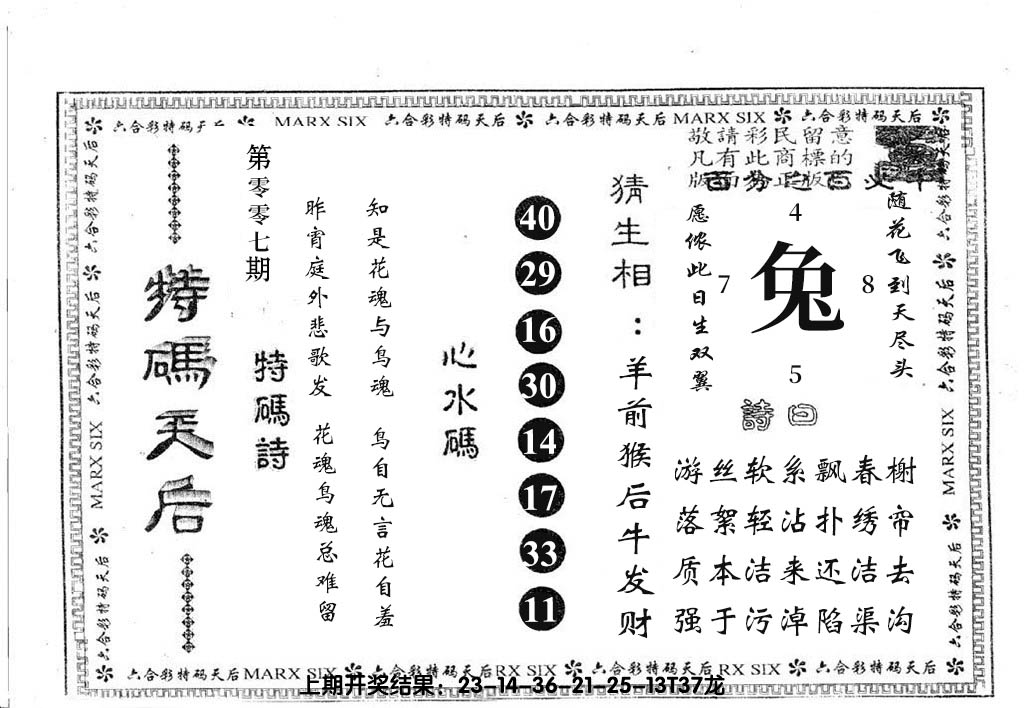 六合彩特码天后 MARX SIX 六合彩特码天后 六合彩特码天后 MARX SIX 六合彩特码天后
六合彩特码天后 六合彩特码天后 MARX SIX 六合彩特码天后
特碼天后
第零零七期
特碼詩
昨宵庭外悲歌发
知是花魂与鸟魂
花魂鸟魂总难留
鸟自无言花自羞
心水碼
40
29
16
30
14
17
33
11
猜生相：羊前猴后牛发财
敬請彩民留意
凡有此商標的
正版
愿侬此日生双翼
4
7
兔
8
5
随花飞到天尽头
詩曰
游丝软系飘春榭
落絮轻沾扑绣帘
质本洁来还洁去
强于污淖陷渠沟
六合彩特码天后 六合彩特码天后 MARX SIX 六合彩特码天后
六合彩特码天后 MARX SIX 六合彩特码天后 RX SIX 六合彩特码天后 RX SIX 六合彩特码天后
上期开奖结果：23-14-36-21-25-13T37龙